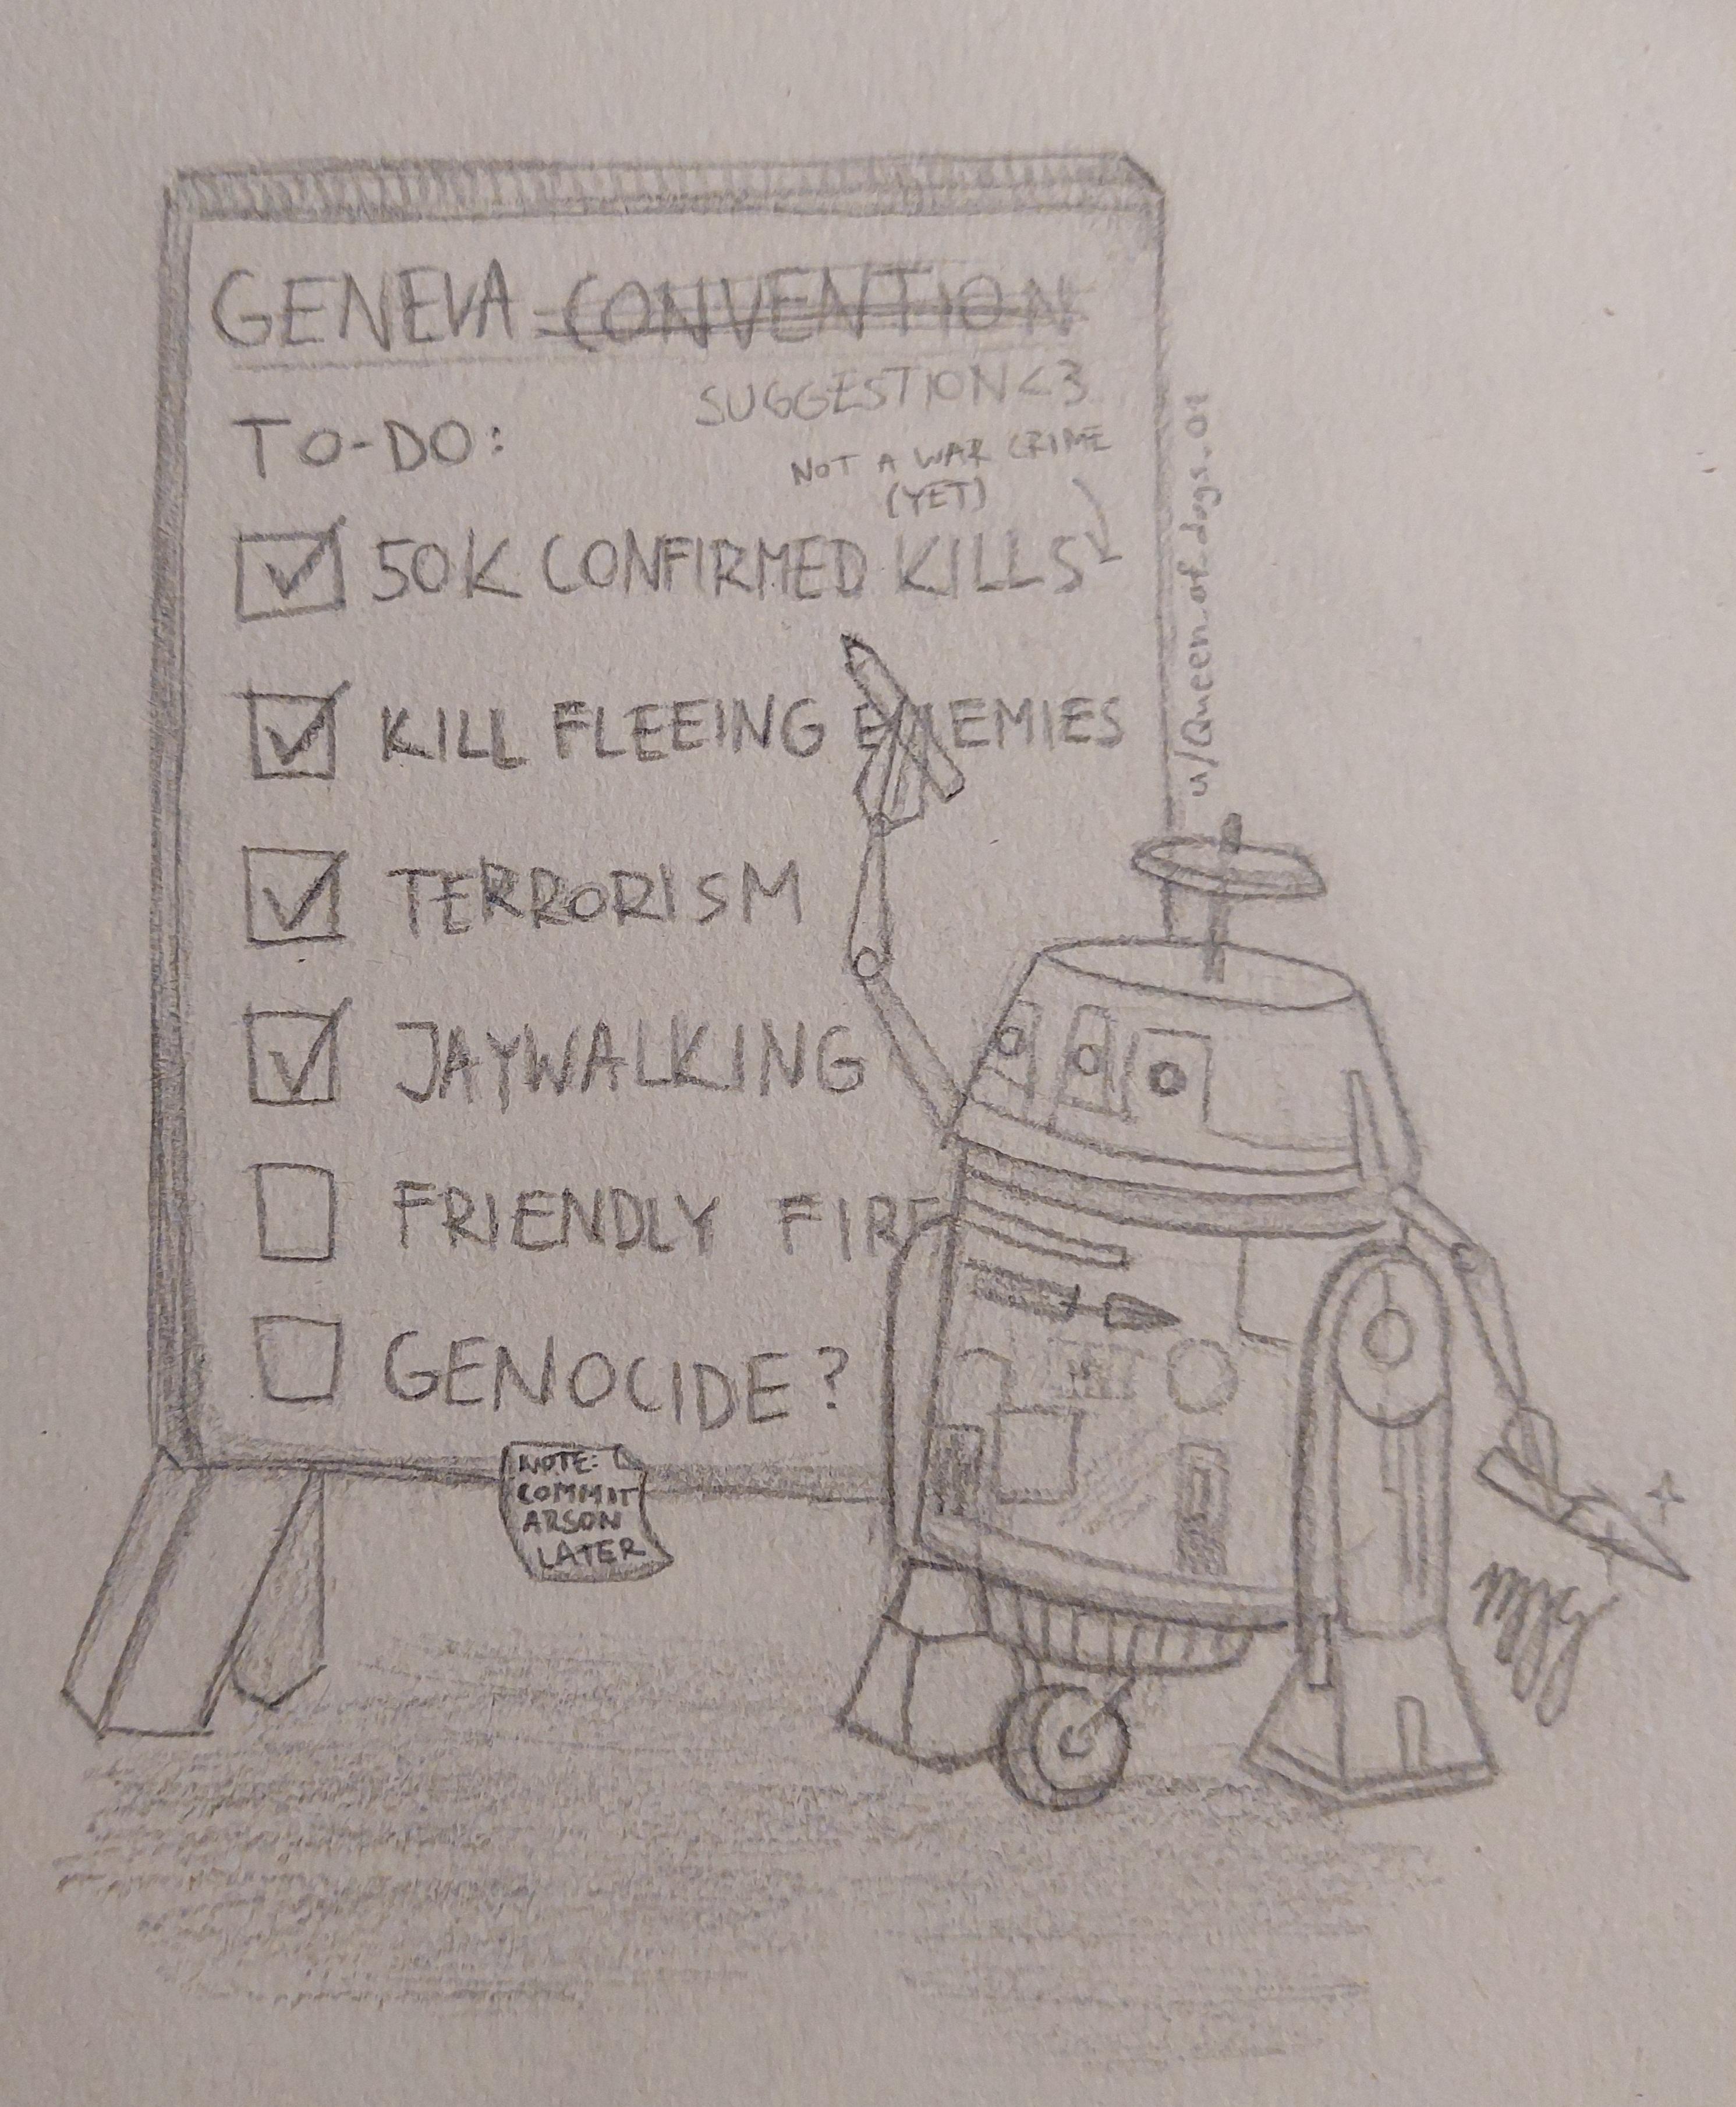 GENEVA CONVENTION
SUGGESTION<3
TO-DO:
NOT A WAR CRIME
(YET)
50K CONFIRMED KILLS
KILL FLEEING ENEMIES
TERRORISM
JAYWALKING
FRIENDLY FIRE
GENOCIDE?
NOTE:
COMMIT
ARSON
LATER
u/Queen_of_dogs_01